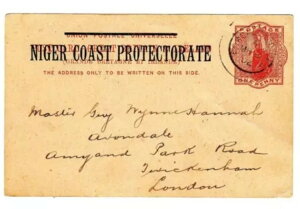 UNION POSTALE UNIVERSELLE
NIGER COAST PROTECTORATE
(GRANDE BRETAGNE ET IRLANDE)
THE ADDRESS ONLY TO BE WRITTEN ON THIS SIDE.
POSTAGE
ONE PENNY
Master Guy Wynne Hannah
Avondale
Amyand Park Road
Twickenham
London